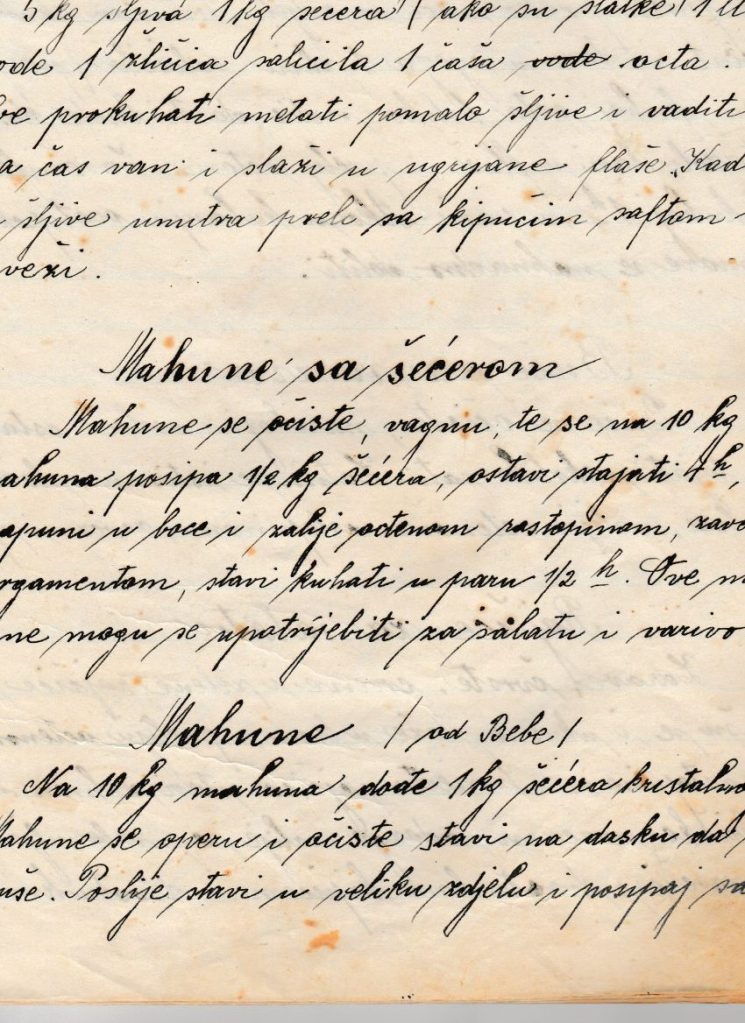 5 kg šljiva 1 kg šećera / ako su slatke / 1 lit
ode 1 žličica salicila 1 čaša vode octa.
ve prokuhati metati pomalo šljive i vaditi
a čas van i slaži u ugrijane flaše. Kad
šljive unutra preli sa kipućim saftom
veži.
Mahune sa šećerom
Mahune se očiste, vagnu, te se na 10 kg
ahuna posipa 1/2 kg šećera, ostavi stajati 4 h,
apuni u boce i zalije octenom rastopinom, zave
rgamentom, stavi kuhati u paru 1/2 h. Ove m
ne mogu se upotrijebiti za salatu i varivo
Mahune / od Bebe /
Na 10 kg mahuna dođe 1 kg šećera kristalno
Mahune se operu i očiste stavi na dasku da
uše. Poslije stavi u veliku zdjelu i posipaj sa